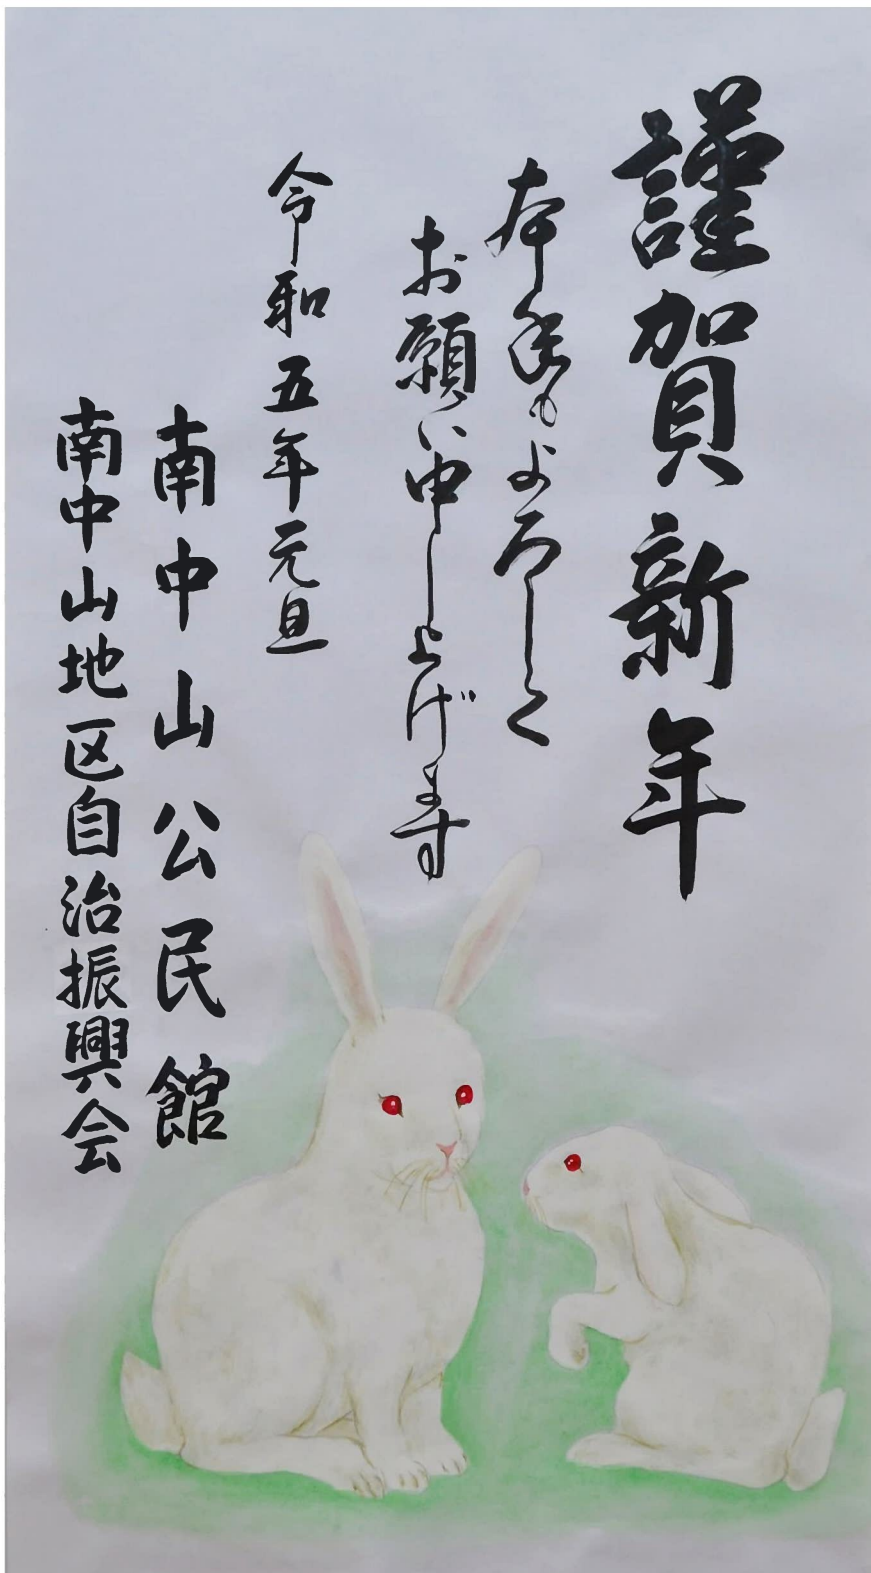 謹賀新年
本年もよろしく
お願い申し上げます
令和五年元旦
南中山公民館
南中山地区自治振興会